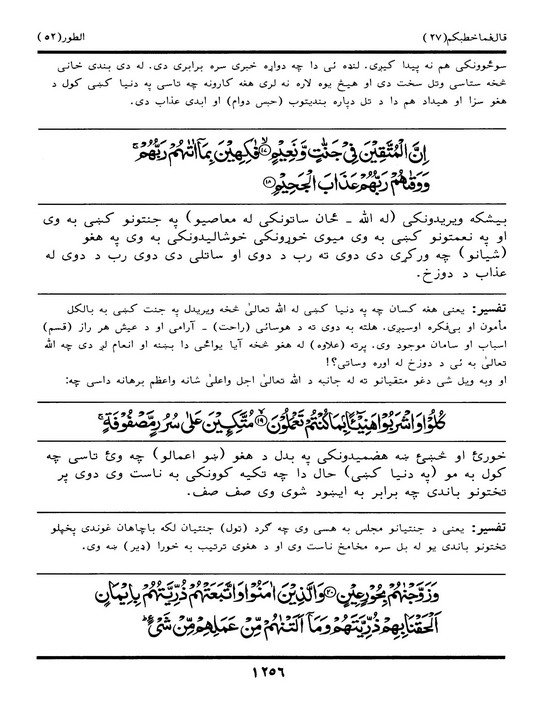 قال فما خطبکم (۲۷) الطور (۵۲)
سوځوونکی هم نه پیدا کیږی. لنډه ئی دا چه دواړه خبری سره برابری دی. له دی بندی خانی
څخه ستاسی وتل سخت دی او هیڅ یوه لاره نه لری هغه کارونه چه تاسی په دنیا کښی کول د
هغو سزا او هیداد هم دا د تل دپاره بندیتوب (حبس دوام) او ابدی عذاب دی.
اِنَّ الْمُتَّقِيْنَ فِيْ جَنّٰتٍ وَّنَعِيْمٍ ﴿۱۷﴾ فٰكِهِيْنَ بِمَآ اٰتٰىهُمْ رَبُّهُمْ ۚ
وَوَقٰىهُمْ رَبُّهُمْ عَذَابَ الْجَحِيْمِ ﴿۱۸﴾
بیشکه ویریدونکی (له الله ـ ځان ساتونکی له معاصیو) په جنتونو کښی به وی
او په نعمتونو کښی به وی میوی خوړونکی خوشالیدونکی به وی په هغو
(شیانو) چه ورکړی دی دوی ته رب د دوی او ساتلی دی دوی رب د دوی له
عذاب د دوزخ.
تفسیر: یعنی هغه کسان چه په دنیا کښی له الله تعالیٰ څخه ویریدل په جنت کښی به بالکل
مأمون او بی‌فکره اوسیږی. هلته به دوی ته د هوسائی (راحت) ـ آرامی او د عیش هر راز (قسم)
اسباب او سامان موجود وی. پرته (علاوه) له هغو څخه آیا یواځی دا بښنه او انعام لږ دی چه الله
تعالیٰ به ئی د دوزخ له اوره وساتی؟!
او وبه ویل شی دغو متقیانو ته له جانبه د الله تعالیٰ اجل واعلیٰ شانه واعظم برهانه داسی چه:
كُلُوْا وَاشْرَبُوْا هَنِيْٓـًٔۢا بِمَا كُنْتُمْ تَعْمَلُوْنَ ﴿۱۹﴾ مُتَّكِـِٕيْنَ عَلٰى سُرُرٍ مَّصْفُوْفَةٍ ۚ
خورئ او څښئ ښه هضمیدونکی په بدل د هغو (ښو اعمالو) چه وئ تاسی چه
کول به مو (په دنیا کښی) حال دا چه تکیه کوونکی به ناست وی دوی پر
تختونو باندی چه برابر به ایښود شوی وی صف صف.
تفسیر: یعنی د جنتیانو مجلس به هسی وی چه گرد (تول) جنتیان لکه باچاهان غوندی پخپلو
تختونو باندی یو له بل سره مخامخ ناست وی او د هغوی ترتیب به خورا (ډیر) ښه وی.
وَزَوَّجْنٰهُمْ بِحُوْرٍ عِيْنٍ ﴿۲۰﴾ وَالَّذِيْنَ اٰمَنُوْا وَاتَّبَعَتْهُمْ ذُرِّيَّتُهُمْ بِاِيْمَانٍ
اَلْحَقْنَا بِهِمْ ذُرِّيَّتَهُمْ وَمَآ اَلَتْنٰهُمْ مِّنْ عَمَلِهِمْ مِّنْ شَيْءٍ ؕ
۱۲۵۶